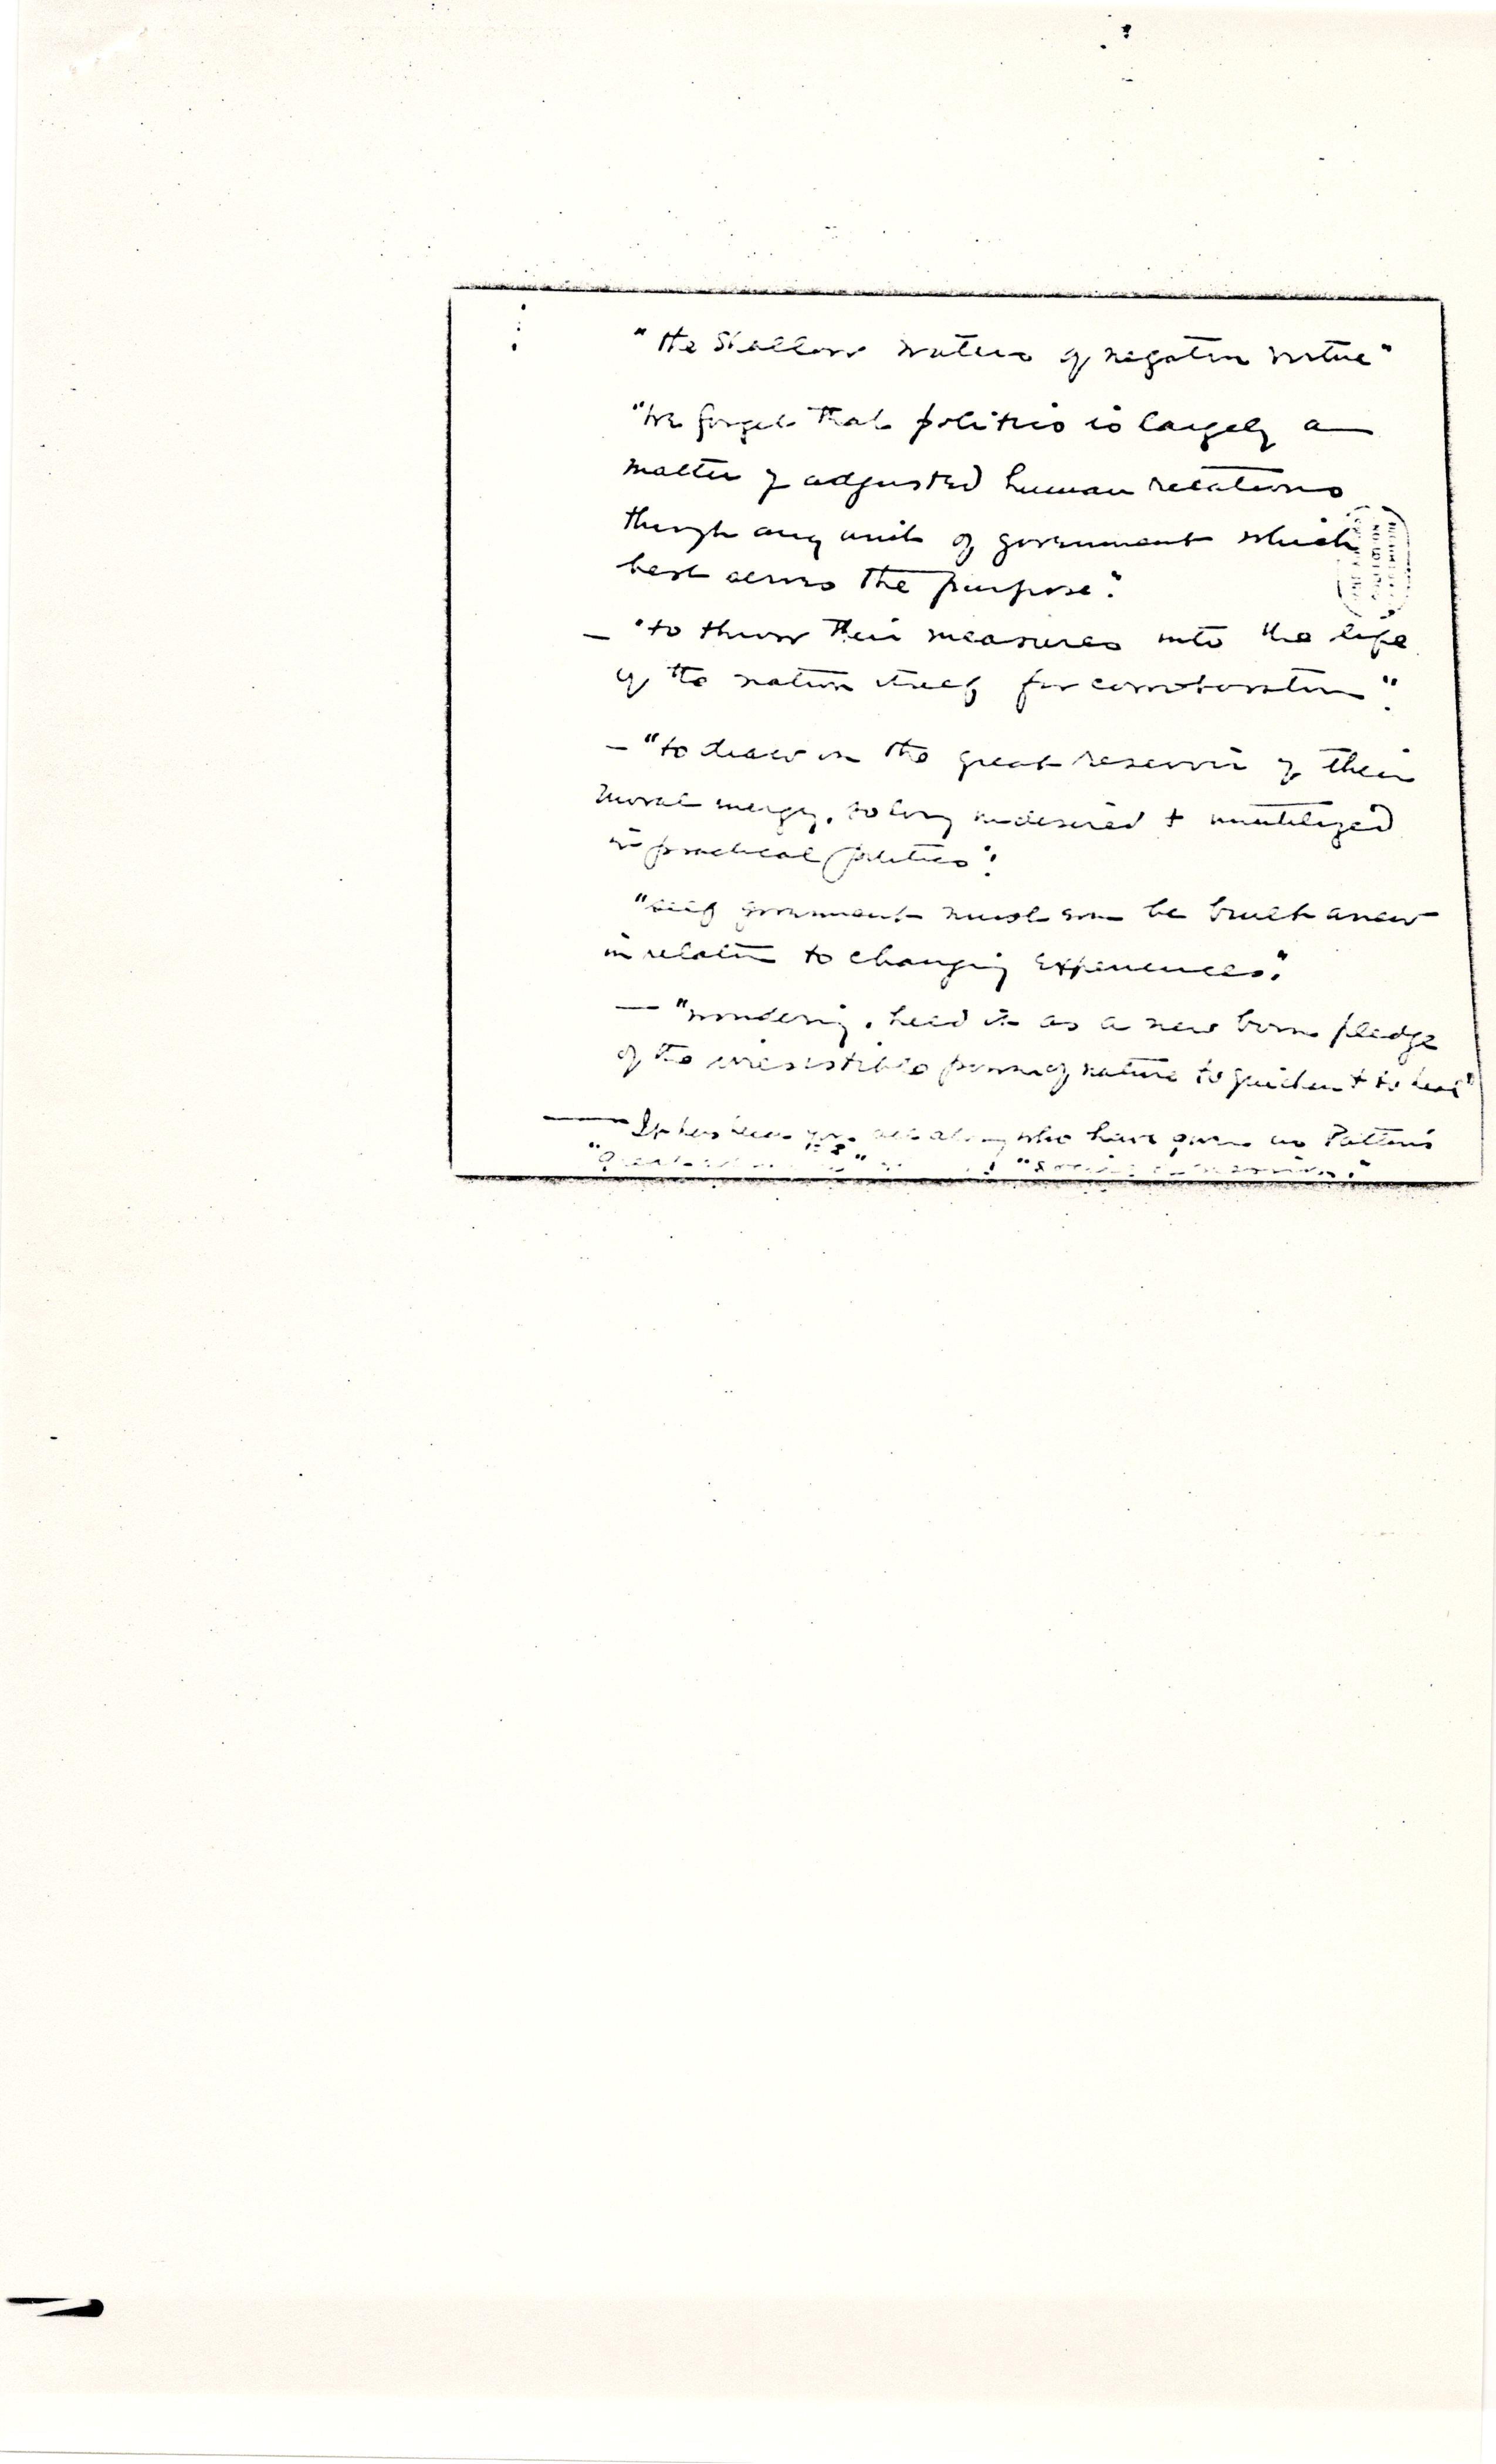 "the shallow waters of negative virtue"
"We forget that politics is largely a
matter of adjusted human relations
through any unit of government which
best serves the purpose."
— "to throw their measures into the life
of the nation itself for corroboration".
— "to draw on the great reservoir of their
moral energy, so long undesired + unutilized
in practical politics".
"self government must ever be built anew
in relation to changing experiences."
— "wondering, held it as a new born pledge
of the irresistible power of nature to quicken + to heal"
— It has been you all along who have given us Patten's